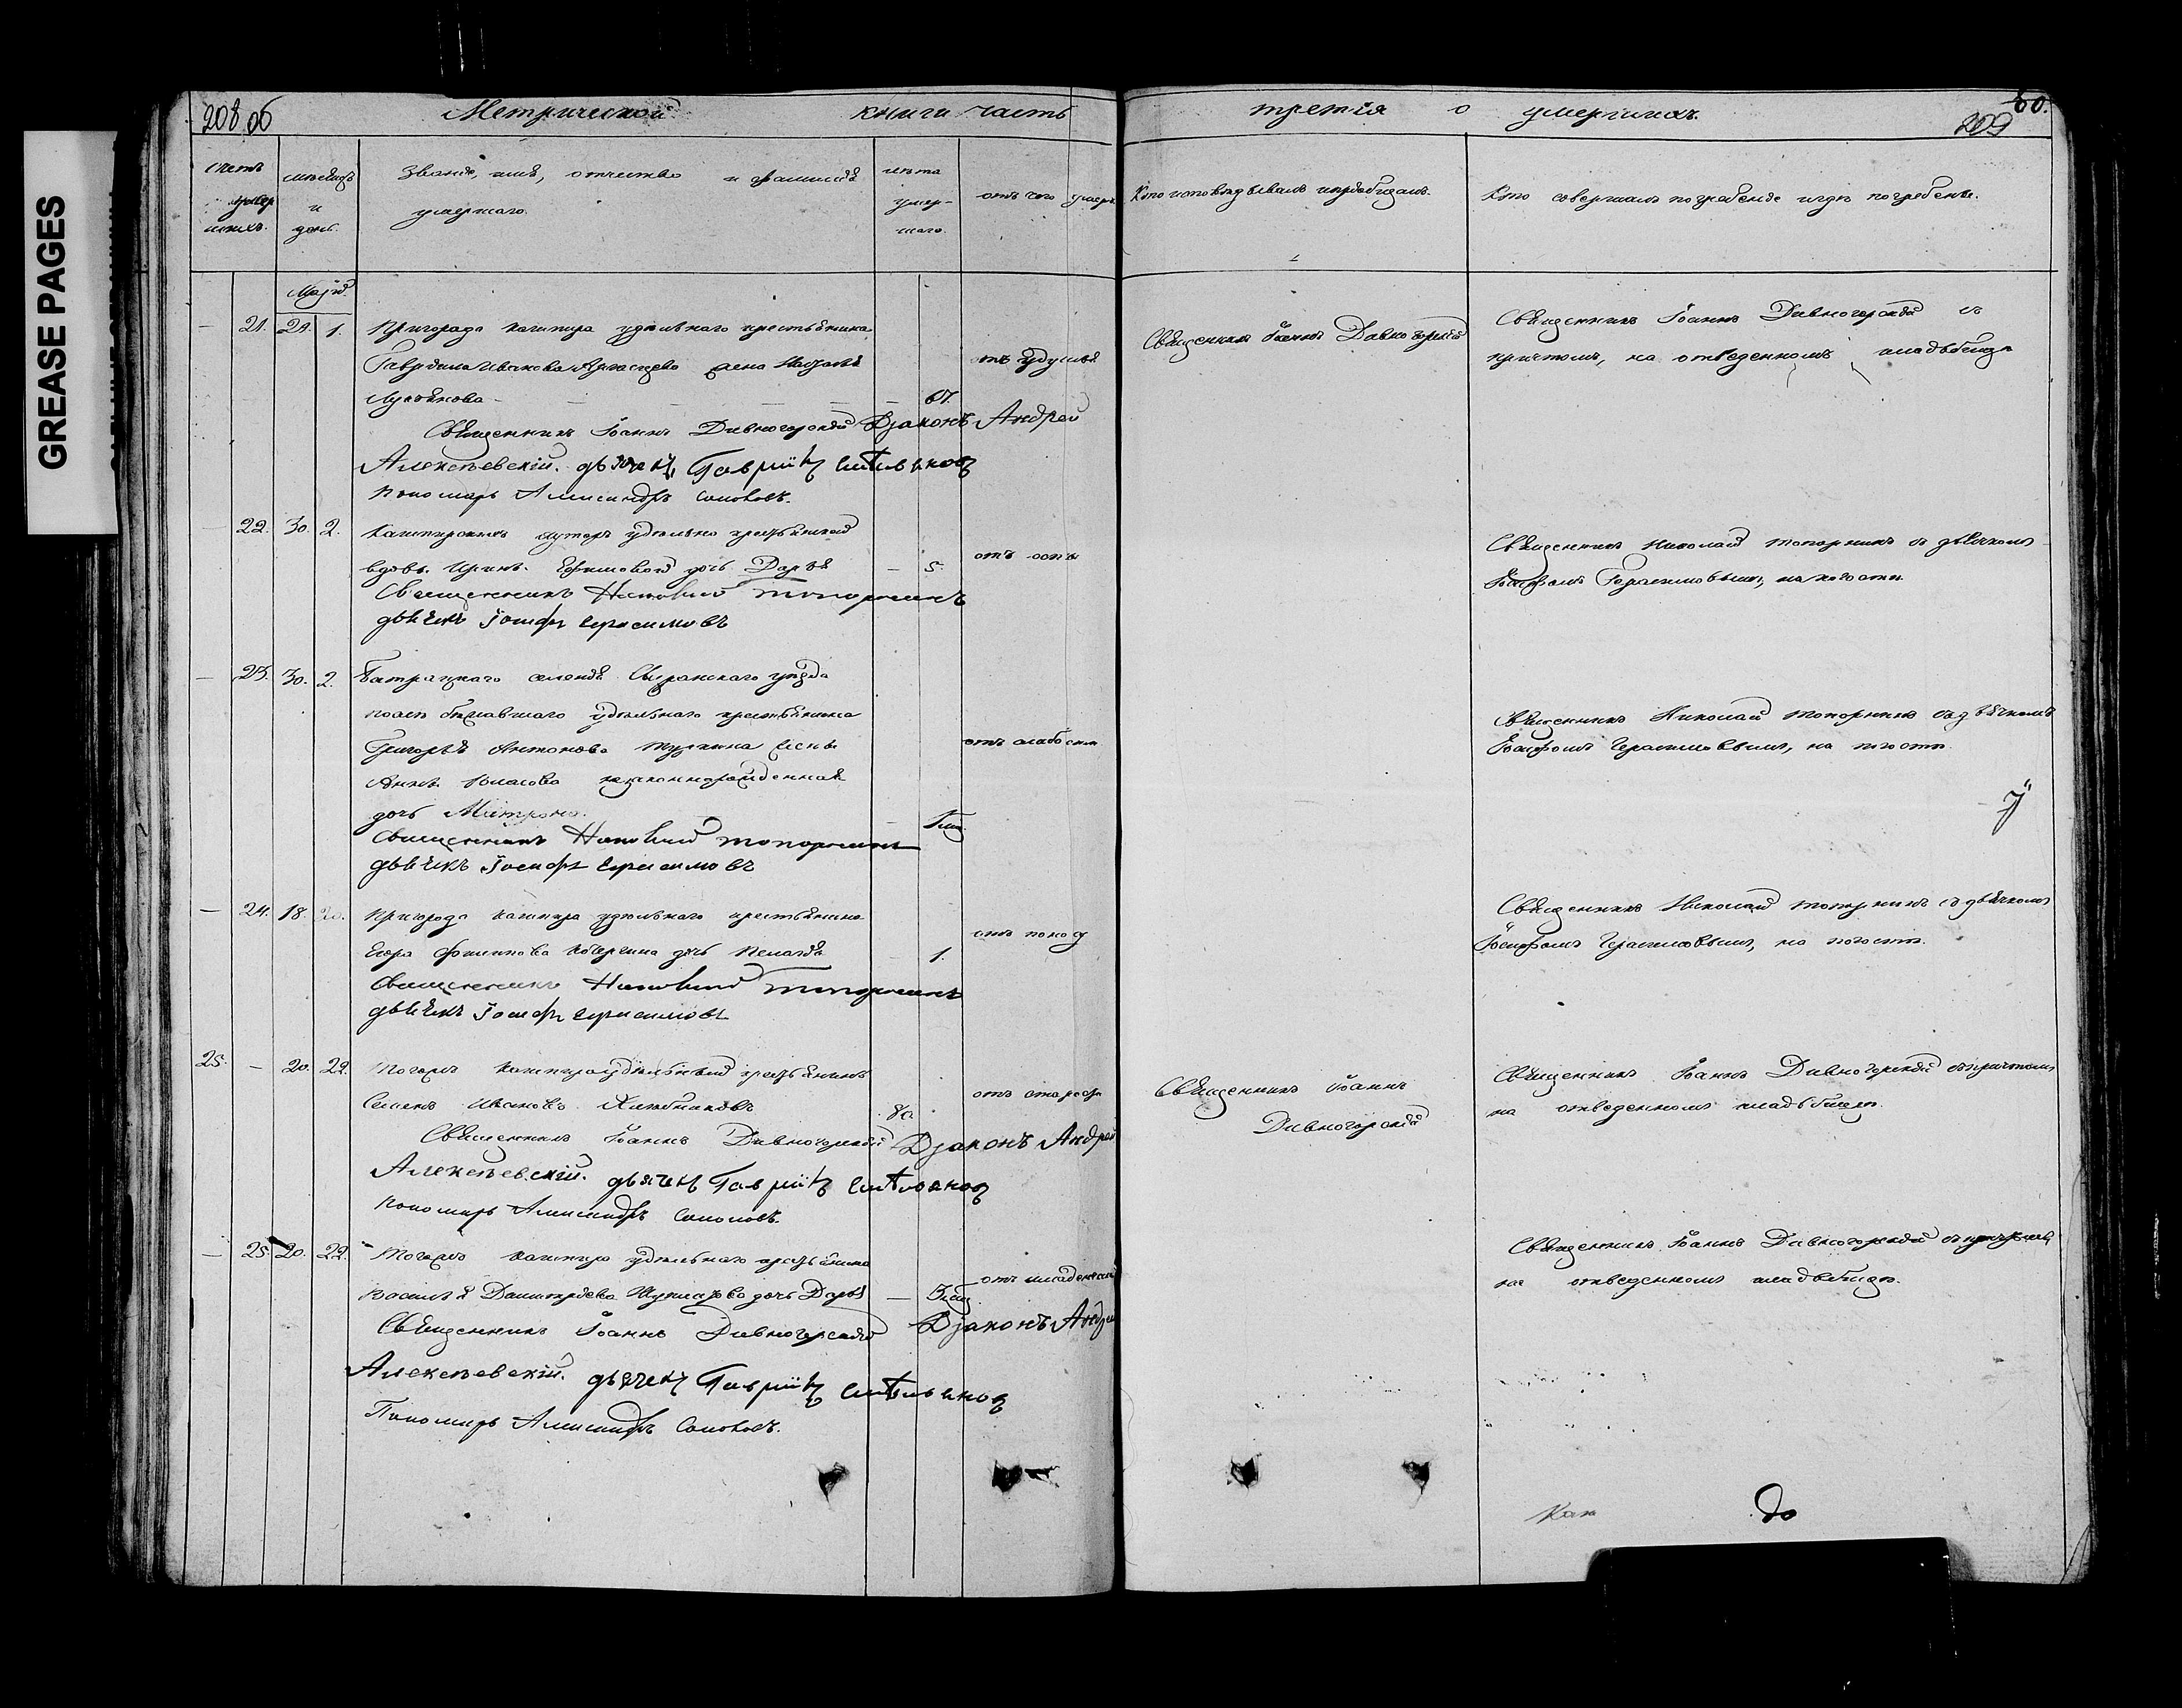 GREASE PAGES
208 об
Метрической книги часть третія о умершихъ.
60.
209
Счетъ умершихъ.
мѣсяцъ и день.
Званіе, имя, отчество и фамилія умершаго.
лѣта умершаго.
отъ чего умеръ
Кто исповѣдывалъ и пріобщалъ.
Кто совершалъ погребеніе и гдѣ погребены.
Маія
— 21. 29. 1. Пригорода Кашпира удѣльнаго крестьянина
Гаврiила Иванова жена
Лукьянова — 67.
отъ удушья
Священникъ Іоаннъ Дивногорскій
Священникъ Іоаннъ Дивногорскій съ
причтомъ, на отведенномъ кладбищѣ
Священникъ Іоаннъ Дивногорскій Діаконъ Андрей
Алексѣевскій. дьячекъ Гавріилъ
Пономарь Александръ Соколовъ.
— 22. 30. 2. Кашпирскихъ хуторъ удѣльно крестьянской
вдовы Ирины Ефимовой дочь Дарья — 5.
отъ оспы
Священникъ Николай Топорнинъ съ дьячкомъ
Іосифомъ Герасимовымъ, на погостѣ.
Священникъ Николай Топорнинъ
дьячекъ Іосифъ Герасимовъ
— 23. 30. 2. Батрацкаго селенія Сызранскаго уѣзда
удѣльнаго крестьянина
Григорья Антонова жены
Анны Власовой незаконнорожденная
дочь Матрона. — 1 мѣс.
отъ слабости
Священникъ Николай Топорнинъ съ дьячкомъ
Іосифомъ Герасимовымъ, на погостѣ.
Священникъ Николай Топорнинъ
дьячекъ Іосифъ Герасимовъ
— 24. 18. 20. Пригорода Кашпира удѣльнаго крестьянина
Егора Филиппова дочь Пелагія — 1.
отъ поносу
Священникъ Николай Топорнинъ съ дьячкомъ
Іосифомъ Герасимовымъ, на погостѣ.
Священникъ Николай Топорнинъ
дьячекъ Іосифъ Герасимовъ
25. — 20. 22. Тогожъ Кашпира удѣльный крестьянинъ
Семенъ Ивановъ Хлѣбниковъ 80.
отъ старости
Священникъ Іоаннъ
Дивногорскій
Священникъ Іоаннъ Дивногорскій съ причтомъ
на отведенномъ кладбищѣ.
Священникъ Іоаннъ Дивногорскій Діаконъ Андрей
Алексѣевскій. дьячекъ Гавріилъ
Пономарь Александръ Соколовъ.
— 25. 20. 22. Тогожъ Кашпира удѣльнаго крестьянина
Василья дочь Дарья — 3 мѣс.
отъ младенческой
Священникъ Іоаннъ Дивногорскій съ причтомъ
на отведенномъ кладбищѣ.
Священникъ Іоаннъ Дивногорскій Діаконъ Андрей
Алексѣевскій. дьячекъ Гавріилъ
Пономарь Александръ Соколовъ.